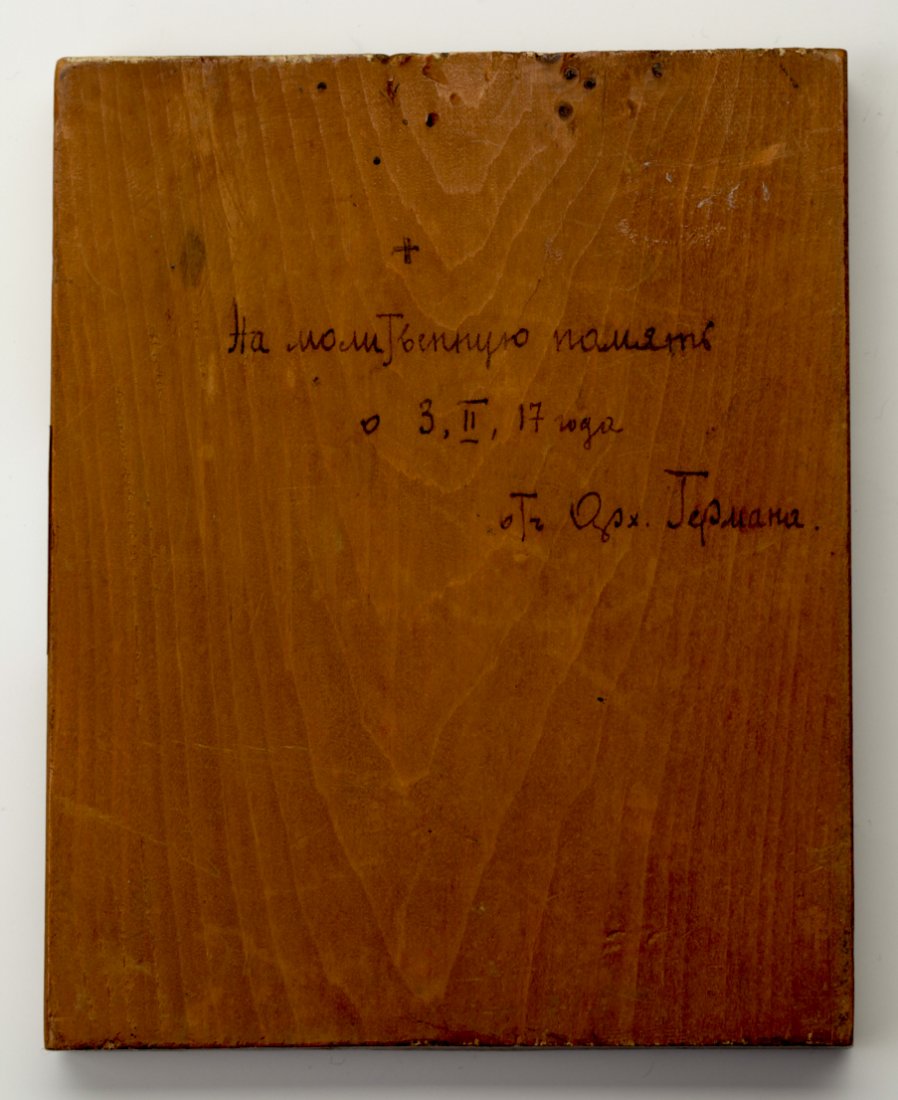 +
На молитвенную память
о 3, II, 17 года
отъ Арх. Германа.